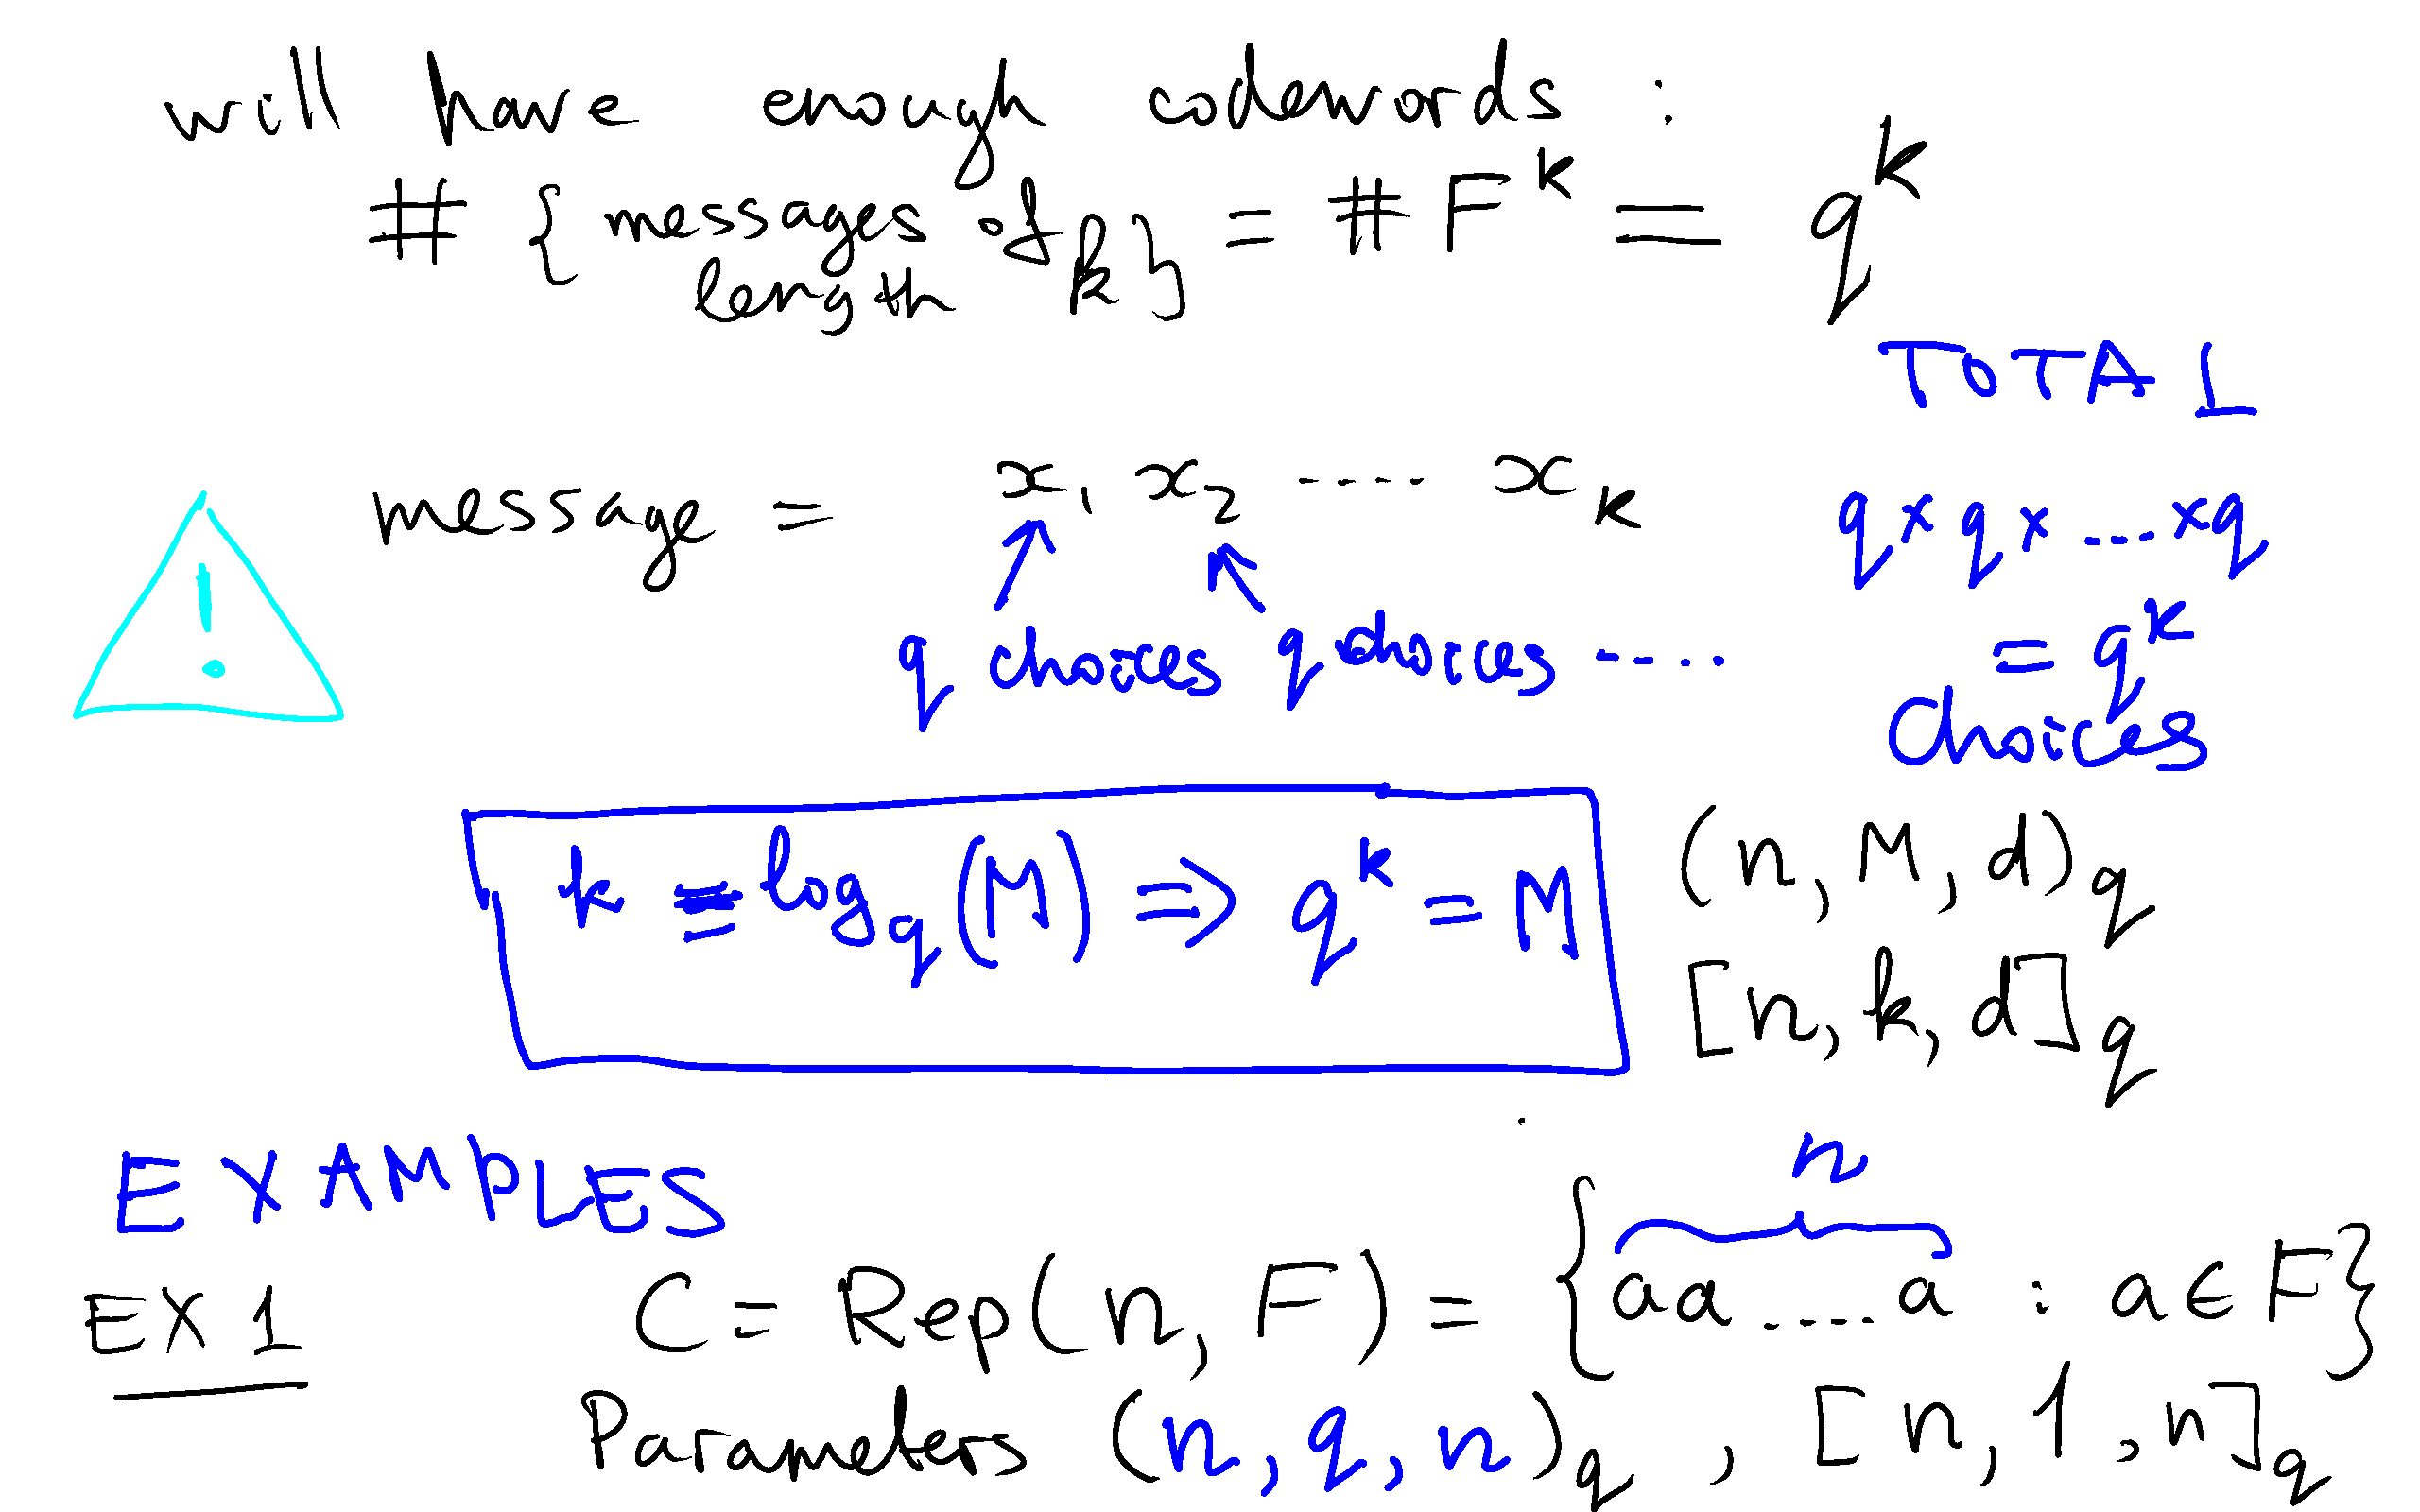 will have enough codewords :
# { messages of length k } = # F^k = q^k
TOTAL
message = x₁ x₂ ..... x_k
q × q × ..... × q
q choices q choices .....
= q^k choices
!
k = log_q (M) ⇒ q^k = M
(n, M, d)_q
[n, k, d]_q
EXAMPLES
n
EX 1 C = Rep(n, F) = { aa .....a : a ∈ F }
Parameters (n, q, n)_q , [n, 1, n]_q